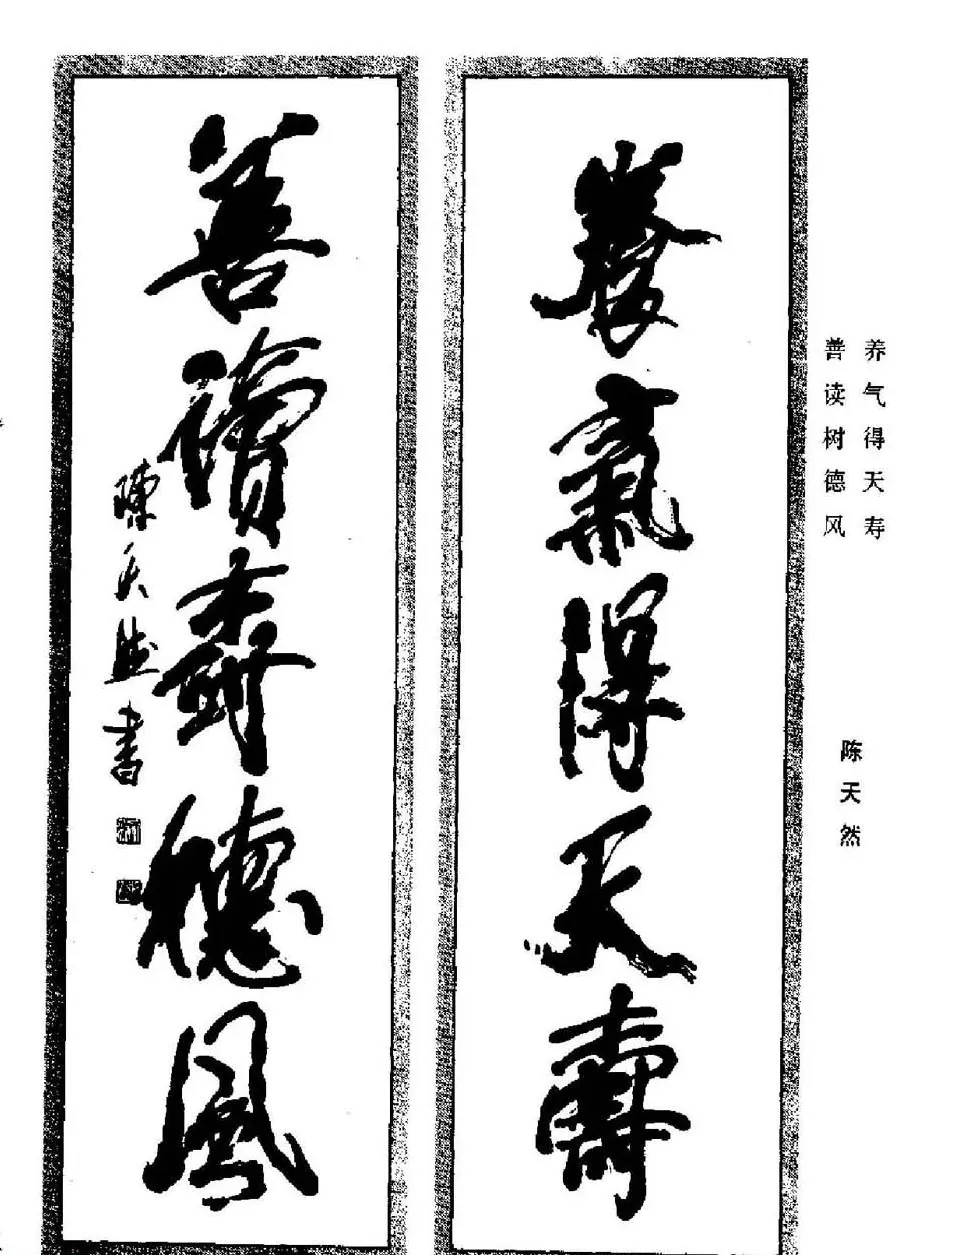 養氣得天壽
善讀樹德風
陳天然書
养气得天寿
善读树德风
陈天然